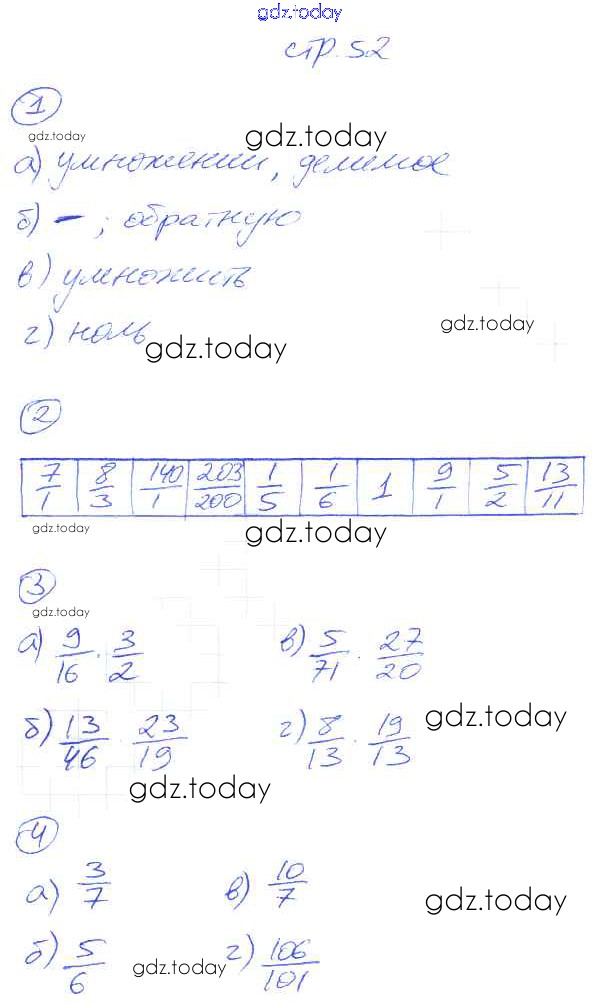 gdz.today
стр. 52
1
gdz.today
gdz.today
а) умножении, делимое
б) – ; обратную
в) умножить
gdz.today
г) ноль
gdz.today
2
7/1 8/3 140/1 203/200 1/5 1/6 1 9/1 5/2 13/11
gdz.today
gdz.today
3
gdz.today
а) 9/16 · 3/2 в) 5/71 · 27/20
б) 13/46 · 23/19 г) 8/13 · 19/13
gdz.today
gdz.today
4
а) 3/7 в) 10/7
gdz.today
б) 5/6 г) 106/101
gdz.today